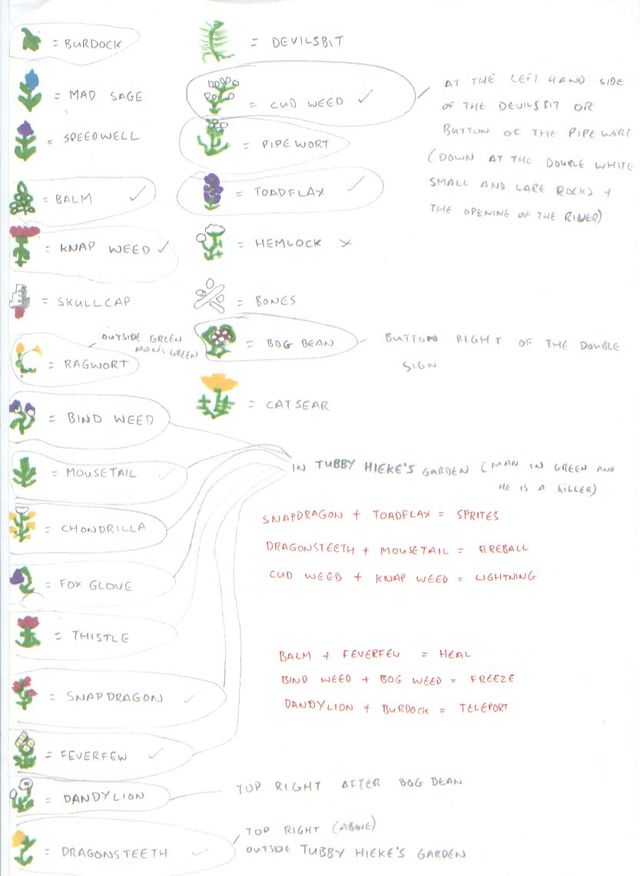 = BURDOCK
= DEVILSBIT
= MAD SAGE
= CUD WEED ✓
AT THE LEFT HAND SIDE
OF THE DEVILSBIT OR
BUTTON OF THE PIPE WORT
(DOWN AT THE DOUBLE WHITE
SMALL AND LARE ROCKS +
THE OPENING OF THE RIVER)
= SPEEDWELL
= PIPEWORT
= BALM ✓
= TOADFLAX ✓
= KNAP WEED ✓
= HEMLOCK ×
= SKULLCAP
= BONES
OUTSIDE GREEN
MAN'S GREEN
= RAGWORT
= BOG BEAN
BUTTON RIGHT OF THE DOUBLE
SIGN
= BIND WEED
= CATSEAR
= MOUSETAIL ✓
IN TUBBY HIEKE'S GARDEN (MAN IN GREEN AND
HE IS A KILLER)
= CHONDRILLA
SNAPDRAGON + TOADFLAX = SPRITES
DRAGONSTEETH + MOUSETAIL = FIREBALL
CUD WEED + KNAP WEED = LIGHTNING
= FOX GLOVE
= THISTLE
BALM + FEVERFEU = HEAL
BIND WEED + BOG WEED = FREEZE
DANDYLION + BURDOCK = TELEPORT
= SNAPDRAGON ✓
= FEVERFEW ✓
= DANDYLION
TOP RIGHT AFTER BOG BEAN
= DRAGONSTEETH ✓
TOP RIGHT (ABONE)
OUTSIDE TUBBY HIEKE'S GARDEN